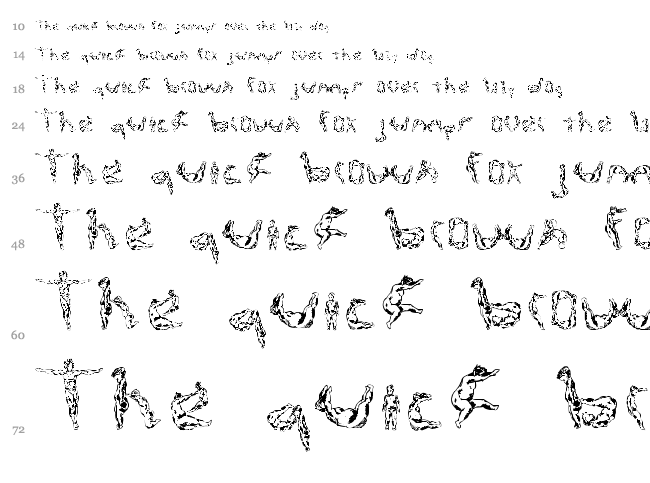 10 The quick brown fox jumps over the lazy dog
14 The quick brown fox jumps over the lazy dog
18 The quick brown fox jumps over the lazy dog
24 The quick brown fox jumps over the
36 The quick brown fox jum
48 The quick brown fo
60 The quick brow
72 The quick br